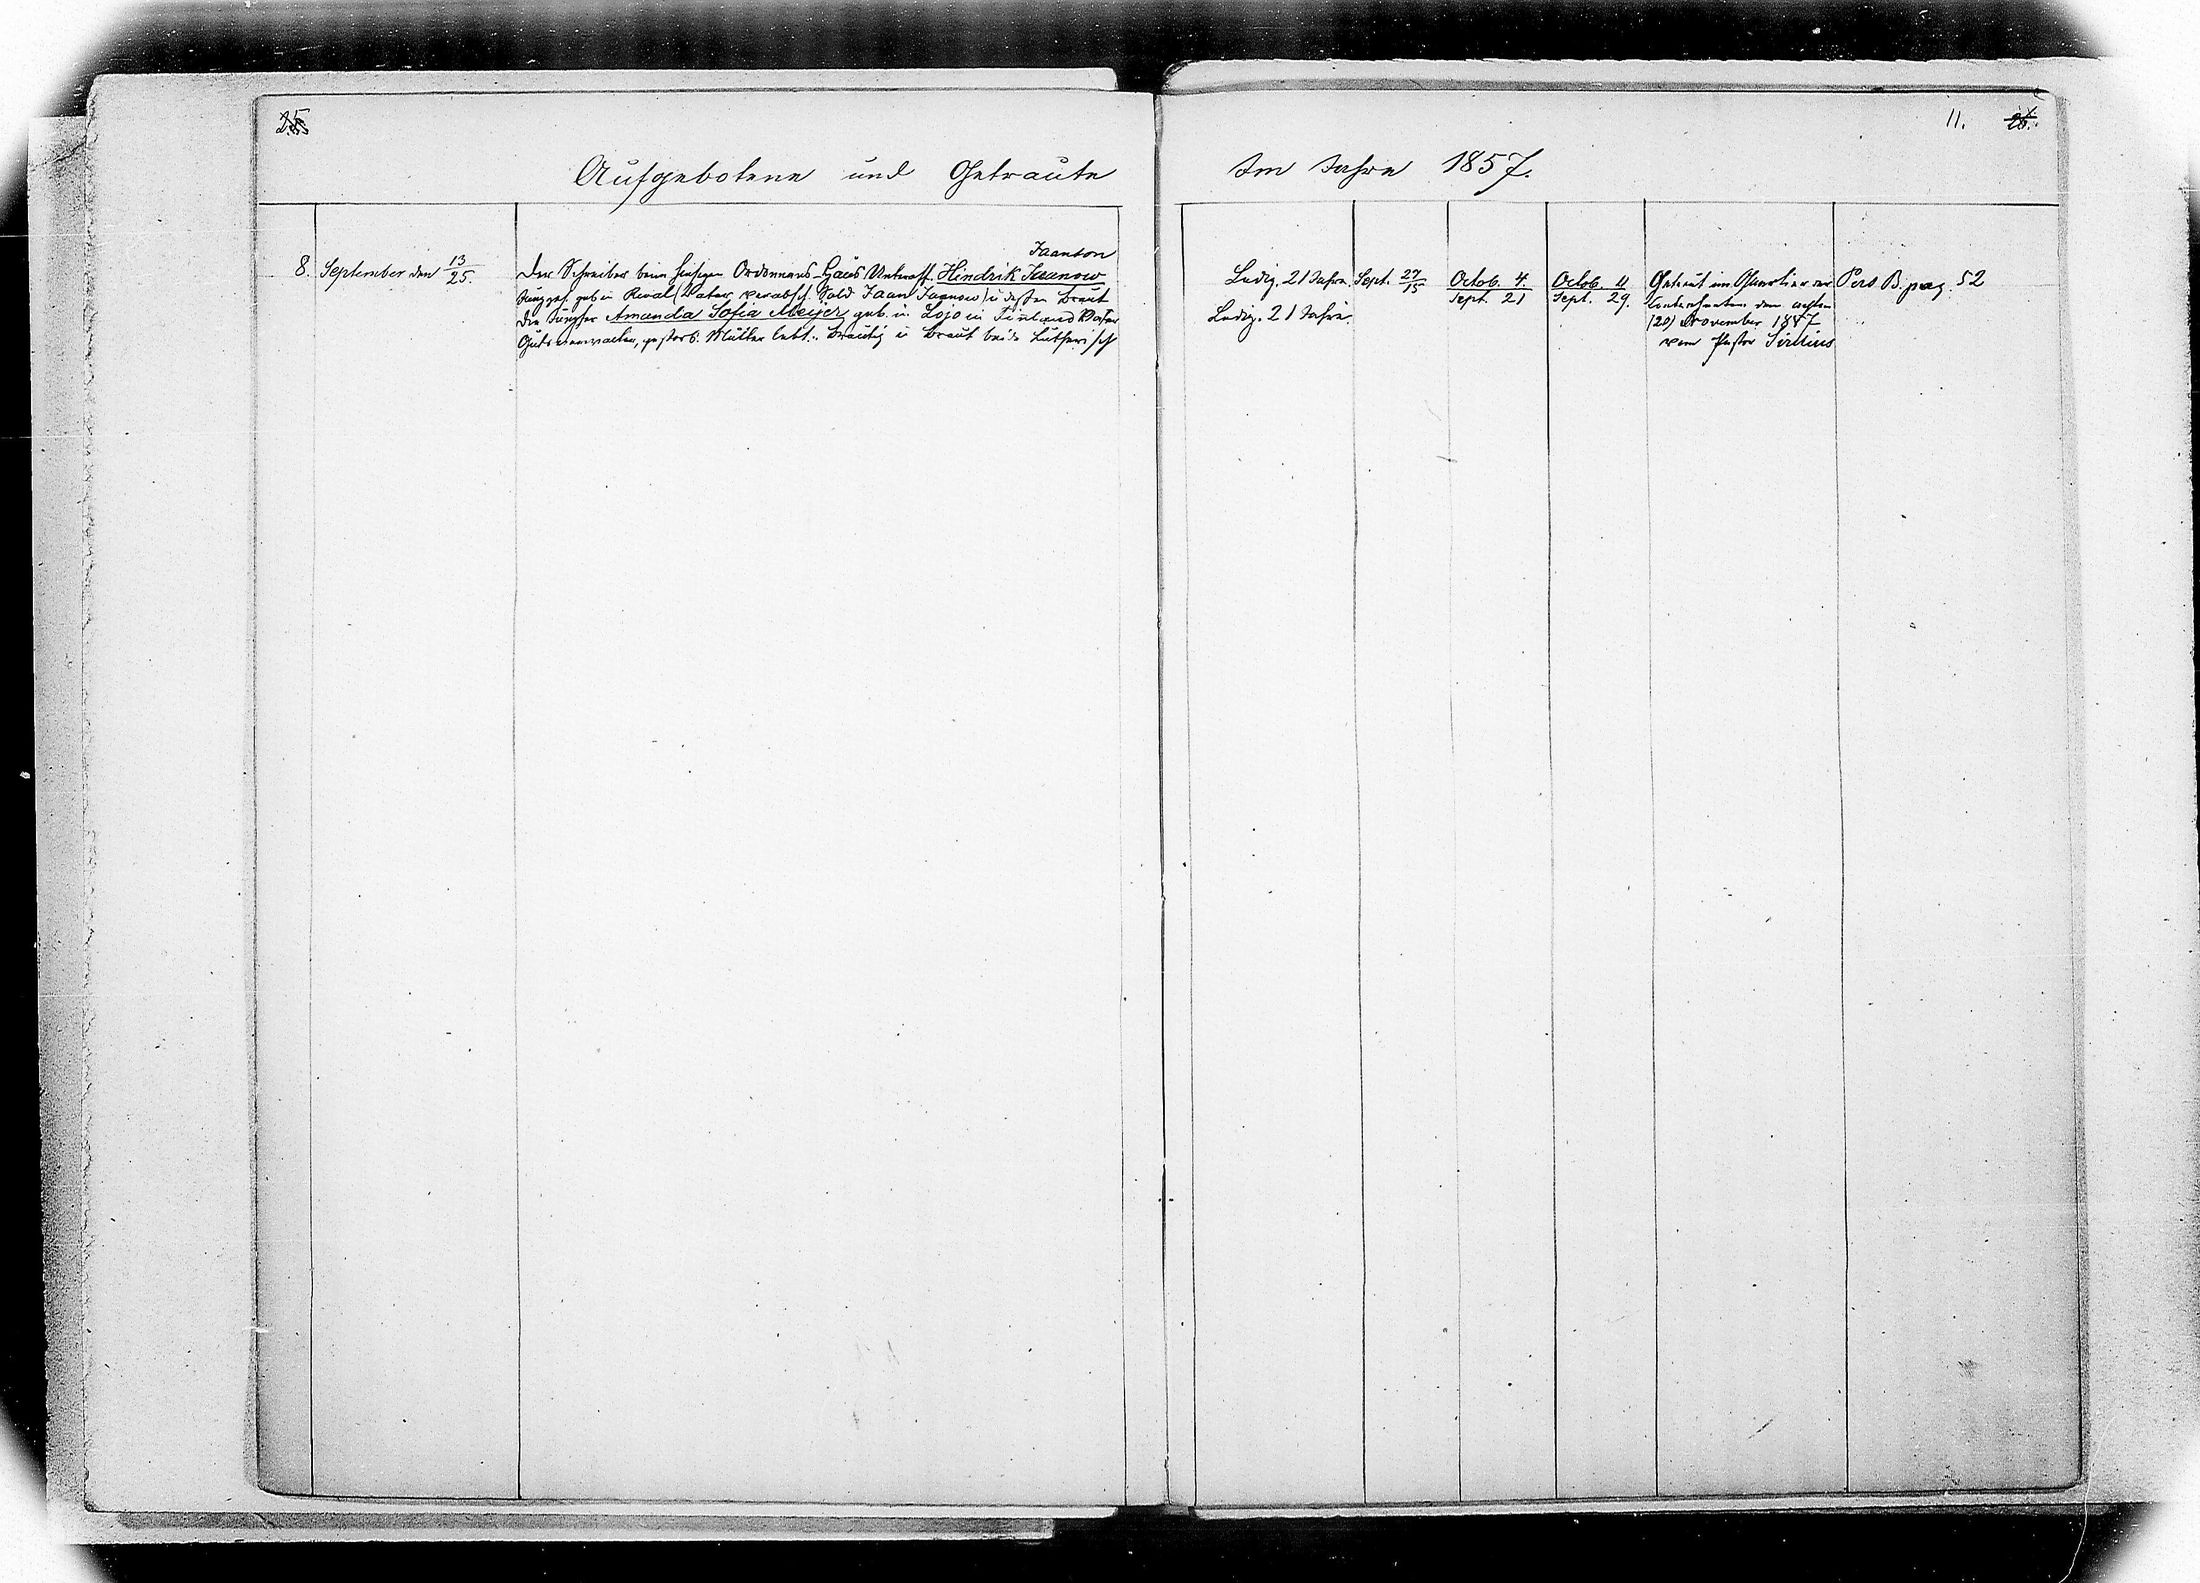 25
11. 26.
Aufgebotene und Getraute
Im Jahre 1857.
Jaanson
8. September den 13/25. Der Schreiber beim hiesigen Ordonnans-Haus Unteroff. Hindrik Jaanow
Junggs. geb in Reval (Vater verabsch. Sold Jaan Jaanow) u dessen Braut
die Jungfer Amanda Sofia Meijer geb. in Lojo in Finland Vater
Gutsverwalter, gestorb. Mutter lebt. Bräutig u Braut beide Lutherisch
Ledig. 21 Jahre. Sept. 27/15 Octob. 4./Sept. 21 Octob. 11/Sept. 29. Getraut im Quartier der Pers B. pag. 52
Ledig. 21 Jahre. Contrahenten den achten
(20) November 1857
vom Pastor Sirelius